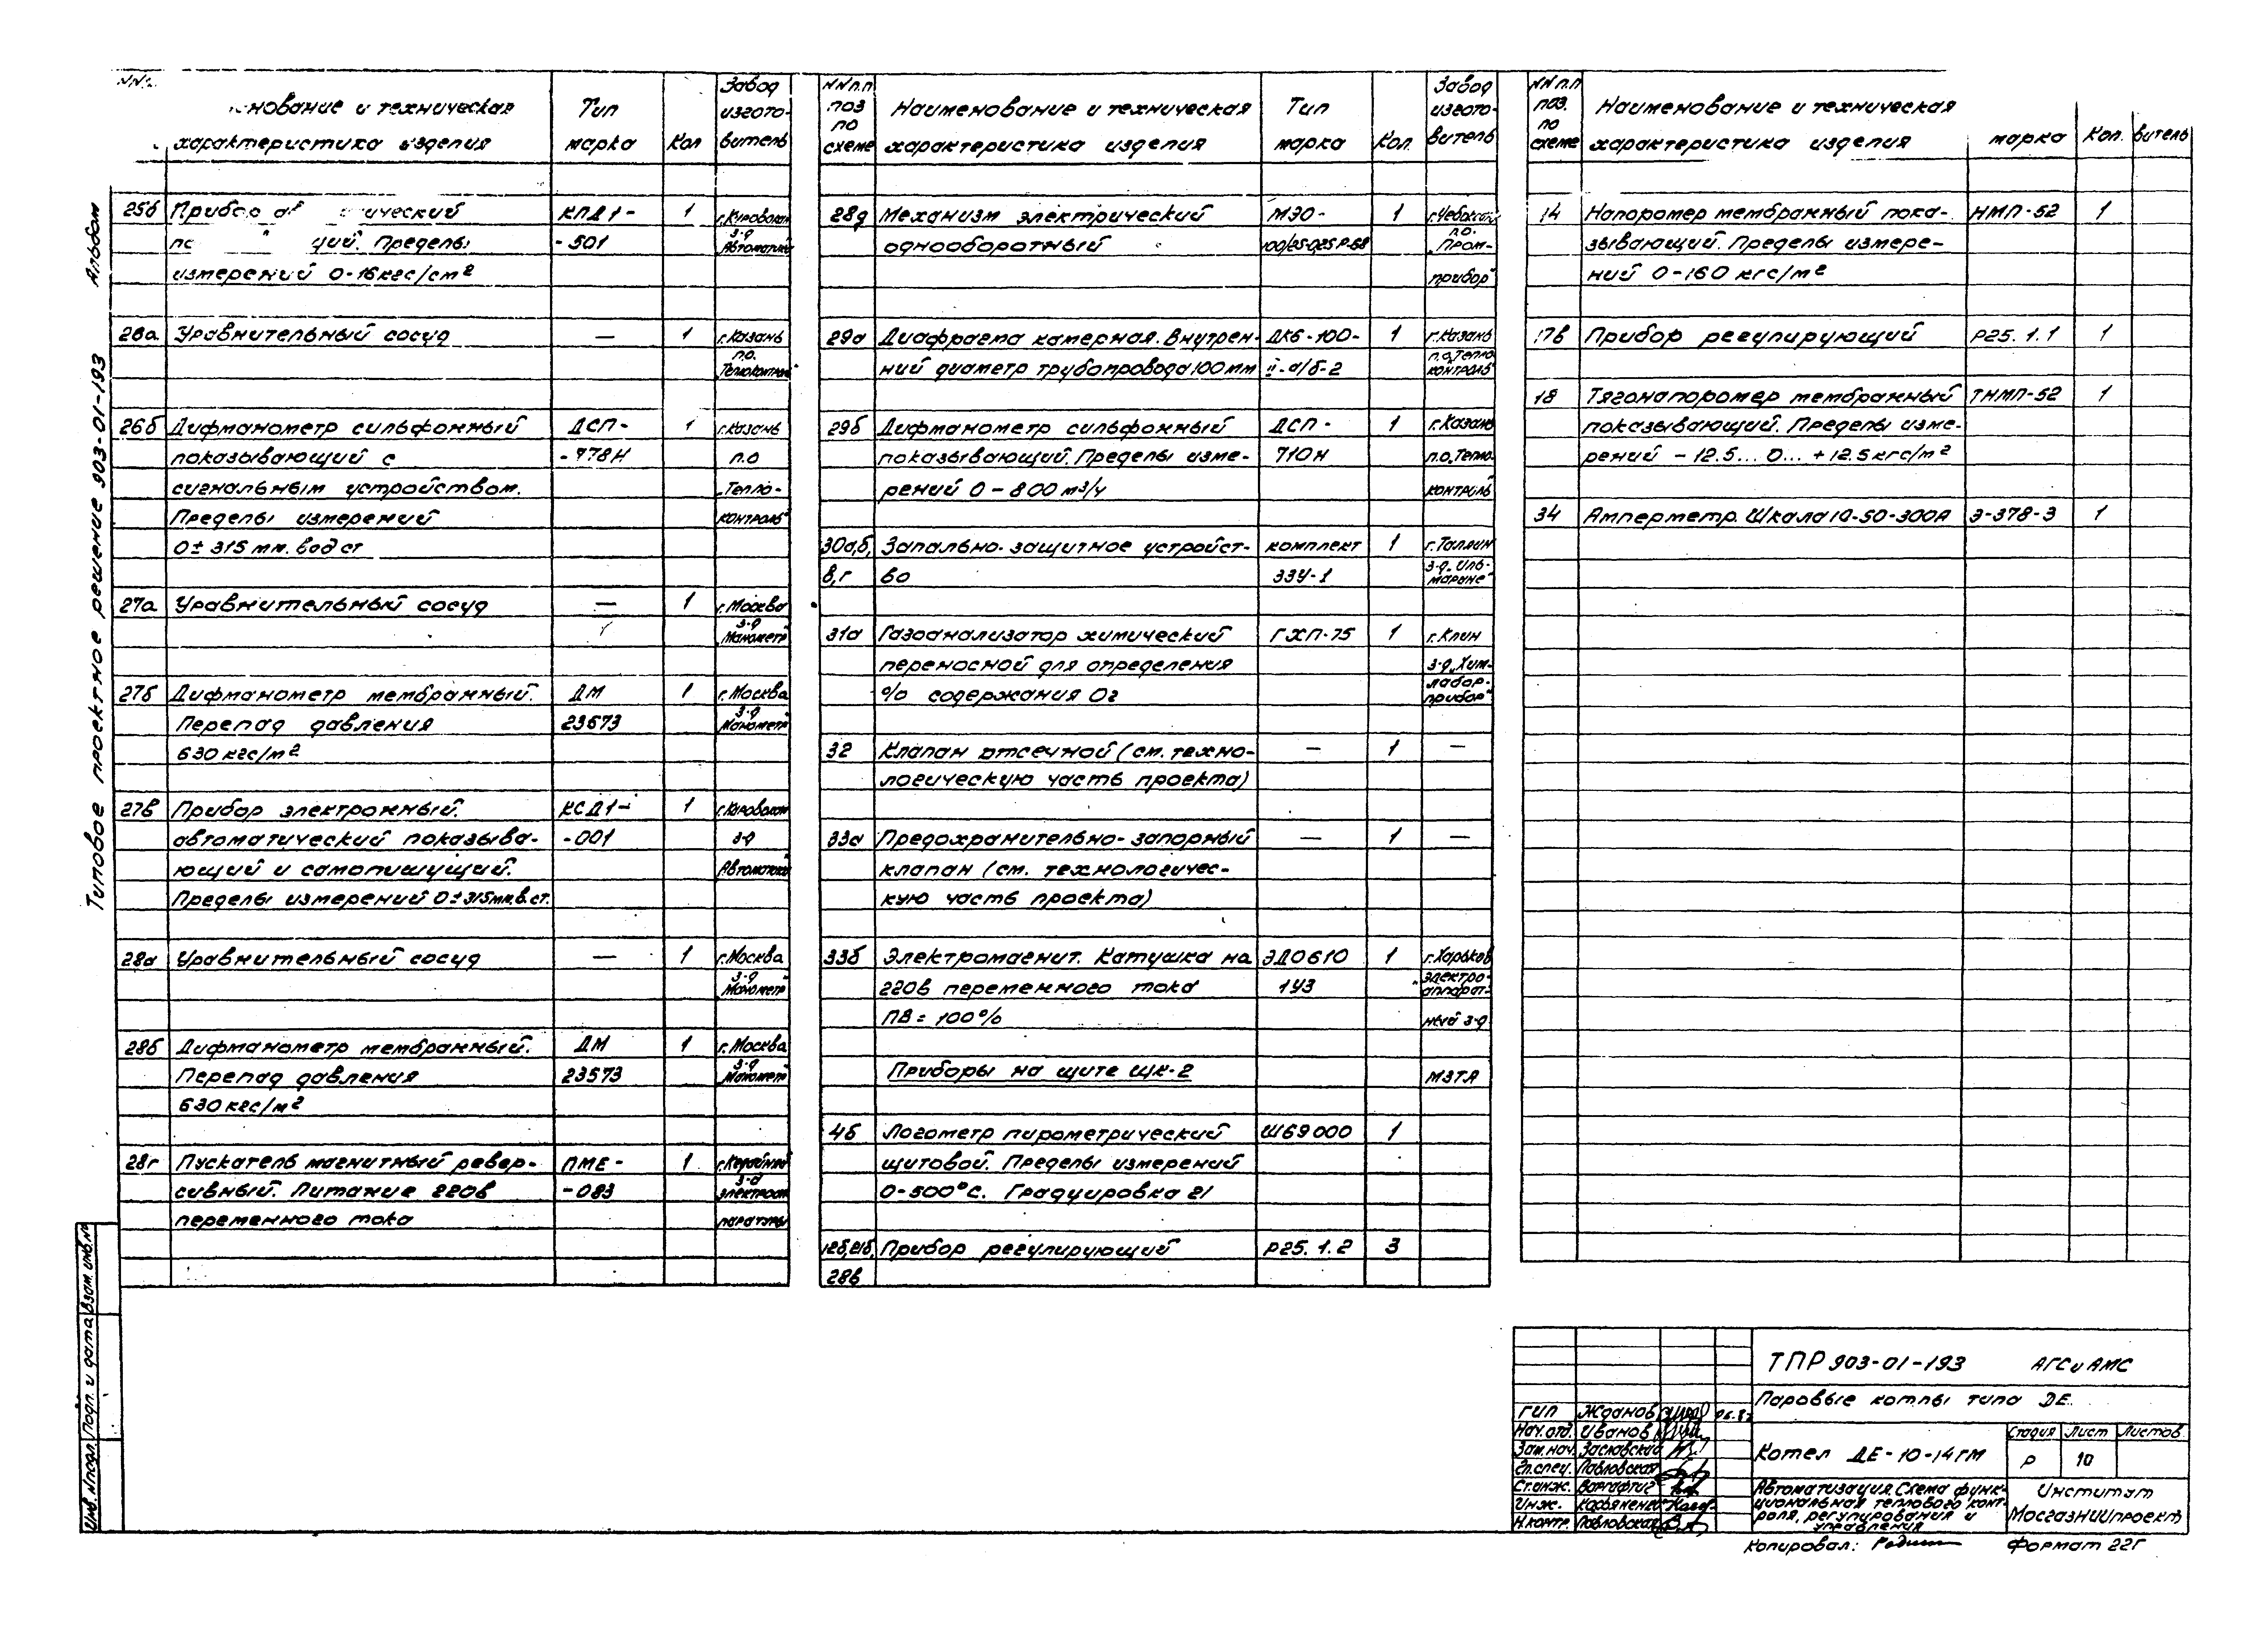 Типовое проектное решение 903-01-193 Альбом
характеристика изделия
и техническая
Тип
марка
Кол
Завод
изгото-
витель
25б Прибор КПД1- 1 г.Кировокан
ций. Пределы -501 з-д
измерений 0-16кгс/см² Автоматика
26а Уравнительный сосуд — 1 г.Казань
п.о.
26б Дифманометр сильфонный ДСП- 1 г.Казань
показывающий с -778Н п.о
сигнальным устройством. „Тепло-
Пределы измерений контроль"
0±315 мм. вод ст
27а Уравнительный сосуд — 1 г.Москва
з-д
„Манометр"
27б Дифманометр мембранный. ДМ 1 г.Москва
Перепад давления 23573 з-д
630 кгс/м² „Манометр"
27в Прибор электронный. КСД1- 1 г.Кировокан
автоматический показыва- -001 з-д
ющий и самопишущий. „Автоматика"
Пределы измерений 0±315мм.в.ст.
28а Уравнительный сосуд — 1 г.Москва
з-д
„Манометр"
28б Дифманометр мембранный. ДМ 1 г.Москва
Перепад давления 23573 з-д
630 кгс/м² „Манометр"
28г Пускатель магнитный ревер- ПМЕ- 1
сивный. Питание 220в -083 з-д
переменного тока электроап
паратуры
NN п.п
поз
по
схеме
Наименование и техническая
характеристика изделия
Тип
марка
Кол.
Завод
изгото-
витель
28д Механизм электрический МЭО- 1 г.Чебоксар
однооборотный 100/25-0,25Р-68 п.о.
„Пром-
прибор"
29а Диафрагма камерная. Внутрен- ДК6-100- 1 г.Казань
ний диаметр трубопровода 100 мм II-а/б-2 п.о„Тепло
контроль"
29б Дифманометр сильфонный ДСП- 1 г.Казань
показывающий. Пределы изме- 710Н п.о„Тепло
рений 0-800 м³/ч контроль
30а,б, Запально-защитное устройст- комплект 1 г.Таллин
в,г во ЗЗУ-1 з-д. Иль-
марине"
31а Газоанализатор химический ГХП-75 1 г.Клин
переносной для определения з-д „Хим-
% содержания О₂ лабор-
прибор"
32 Клапан отсечной (см. техно- — 1 —
логическую часть проекта)
33а Предохранительно-запорный — 1 —
клапан (см. технологичес-
кую часть проекта)
33б Электромагнит. Катушка на ЭД0610 1 г.Харьков
220в переменного тока 1У3 „электро-
ПВ = 100% аппарат-
ный з-д
Приборы на щите ЩК-2 МЗТА
4б Логометр пирометрический Ш69000 1
щитовой. Пределы измерений
0-500°С. Градуировка 21
12б,21б, Прибор регулирующий Р25.1.2 3
28в
NN п.п
поз.
по
схеме
Наименование и техническая
характеристика изделия
марка
Кол.
витель
14 Напоромер мембранный пока- НМП-52 1
зывающий. Пределы измере-
ний 0-160 кгс/м²
17в Прибор регулирующий Р25.1.1 1
18 Тягонапоромер мембранный ТНМП-52 1
показывающий. Пределы изме-
рений -12.5...0...+12.5 кгс/м²
34 Амперметр. Шкала 10-50-300А Э-378-3 1
ТПР 903-01-193 АГСиАМС
Паровые котлы типа ДЕ
ГИП Жданов
Нач.отд. Иванов
Зам.нач. Заславский
Гл.спец. Павловская
Ст.инж. Варгафтиг
Инж.
Н.контр. Павловская
Котел ДЕ-10-14ГМ
Стадия Лист Листов
Р 10
Автоматизация. Схема функ-
циональная теплового конт-
роля, регулирования и
управления
Институт
МосгазНИИпроект
Копировал:
Формат 22Г
Инв. N подл. Подп. и дата Взам. инв. N